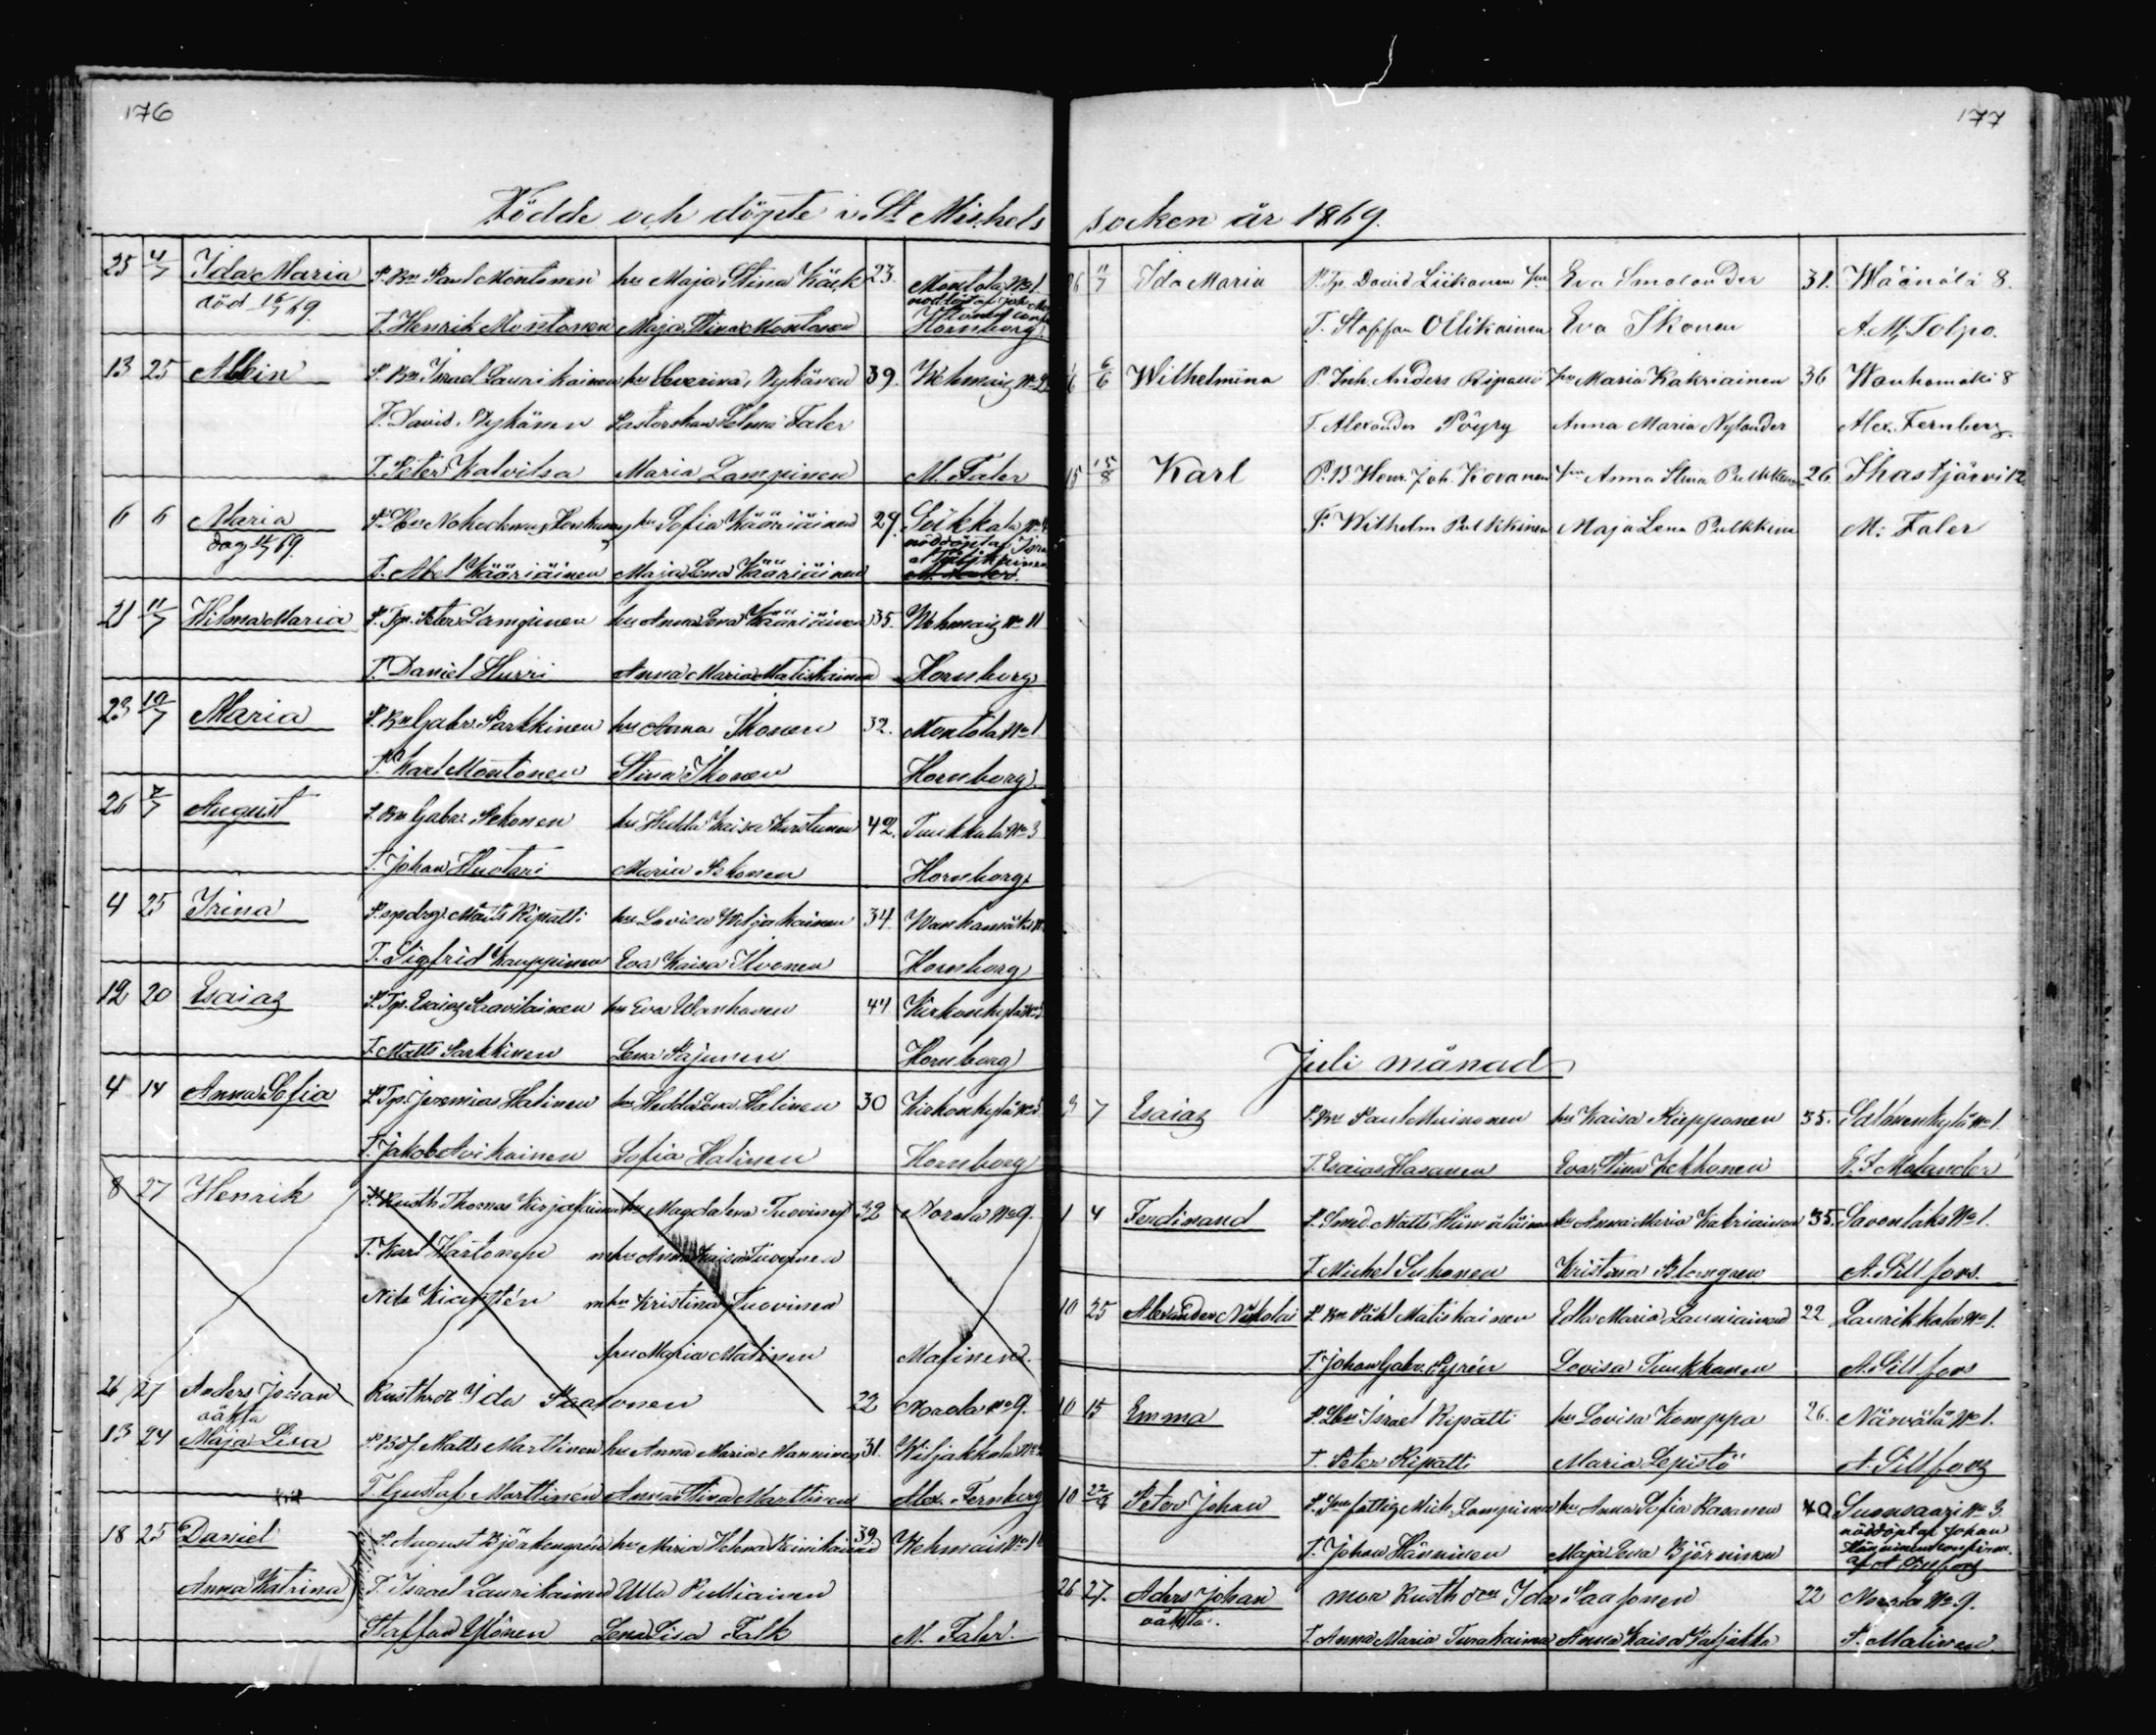 176
Födde och döpte i St Michels
25 4/7 Ida Maria P. Bn Paul Montonen hu Maja Stina Käck 23. Montola No 1.
död 16/7 69.
T. Henrik Montonen Maja Stina Montonen Hornborg.
13 25 Albin P. Bn Israel Laurikainen hu Severina Nykänen 39. Wehmais No 2
T. David Nykänen Pastorskan Selma Faler
T. Peter Kalvitsa Maria Lampinen M. Faler
6 6 Maria hu Sofia Kääriäinen 29.
T. Abel Kääriäinen Maja Lena Kääriäinen
21 11/7 Wilma Maria P. Tp. Peter Lampinen hu Anna Lena Kääriäinen 35. Wehmais No 11
T. Daniel Hurri Anna Maria Matiskainen Hornborg
23 10/7 Maria P. Bn Gabr. Parkkinen hu Anna Ikonen 32. Montola No 1
T. Karl Montonen Stina Ikonen Hornborg
26 7/7 August P. Bn Gabr. Pekonen hu Hedda Kaisa 42. Tuukkala No 3
T. Johan Huotari Maria Pekonen Hornborg
4 25 Irina Matts Ripatti hu Lovisa Wiljakainen 34. Wanhamäki
T. Sigfrid Kauppinen Eva Kaisa Ilvonen Hornborg
12 20 Esaias P. Tp. Esaias Laavilainen hu Eva Wanhanen 44 Kirkonkylä
T. Matts Parkkinen Lena Pajunen Hornborg
4 14 Anna Sofia P. Tp. Jeremias Halinen hu Hedda Lena Halinen 30 Kirkonkylä
T. Jakob Avikainen Sofia Halinen Hornborg
8 27 Henrik P. Rusth. Thomas Kirjakainen hu Magdalena Tuovinen 32 Norola No 9.
T. Karl Hartonen mhu Anna Kaisa Tuovinen
Nils mhu Kristina Tuovinen
fru Maria Malinen Malinen.
26 27 Anders Johan Rusthdr Ida Paasonen 22 Norola No 9.
oäkta
13 24 Maja Lisa Matts Marttinen hu Anna Maria Manninen 31. Wiljakkala
T. Gustaf Marttinen Anna Stina Marttinen Alex. Fernberg
18 25 Daniel P. August Björkengrén hu Maria Helena 39 Wehmais No 1
Anna Katrina T. Israel Laurikainen Ulla Pulliainen
Staffan Ylönen Lena Lisa Falk M. Faler.
177
socken år 1869.
26 11/7 Ida Maria P. Tp. David Liikanen hu Eva Smolander 31. Wäänälä 8.
T. Staffan Ollikainen Eva Ikonen A. M. Tolpo.
6/6 Wilhelmina P. Inh. Anders Ripatti hu Maria Kakriainen 36 Wanhamäki 8
T. Alexander Pöyry Anna Maria Nylander Alex. Fernberg.
15 15/8 Karl P. B. Henr. Joh. Kovanen hu Anna Stina Pulkkinen 26. Ihastjärvi 12
F. Wilhelm Pulkkinen Maja Lena Pulkkinen M. Faler
Juli månad
3 7 Esaias P. Bn Paul Muinonen hu Kaisa Piepponen 35. Salovenkylä No 1.
T. Esaias Hasanen Eva Stina Kekkonen E. F. Molander
1 4 Ferdinand P. Smed. Matts Hämäläinen hu Anna Maria Kakriainen 35. Savonlaks No 1.
T. Michel Suhonen Kristina Blomgren A. Sillfors.
10 25 Alexander Nikolai P. Bn Påhl Matiskainen Edla Maria Launiainen 22. Laurikkala No 1.
T. Johan Gabr. Pyrén Lovisa Tuukkanen A. Sillfors
10 15 Emma Israel Ripatti hu Lovisa Komppa 26. Närvälä No 1.
T. Peter Ripatti Maria Lepistö A. Sillfors
10 Peter Johan Mich. Lampinen hu Anna Sofia Kasanen 40 Suonsaari No 3.
nöddöpt af Johan
T. Johan Hänninen Maja Lena Björninen
af A Sillfors
26 27. Aders Johan mor Rusth drs Ida Paasonen 22 Norola No 9.
oäkta.
T. Anna Maria Turakainen Anna Kaisa P. Malinen